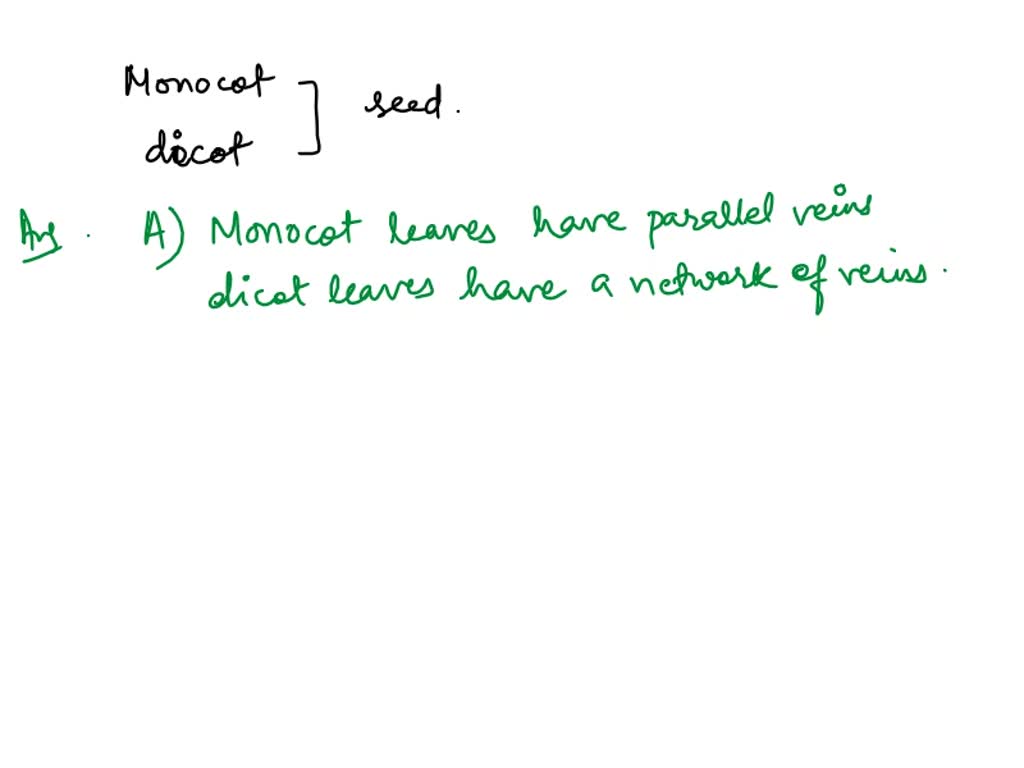 Monocot
dicot
] seed.
Ans. A) Monocot leaves have parallel veins
dicot leaves have a network of veins.